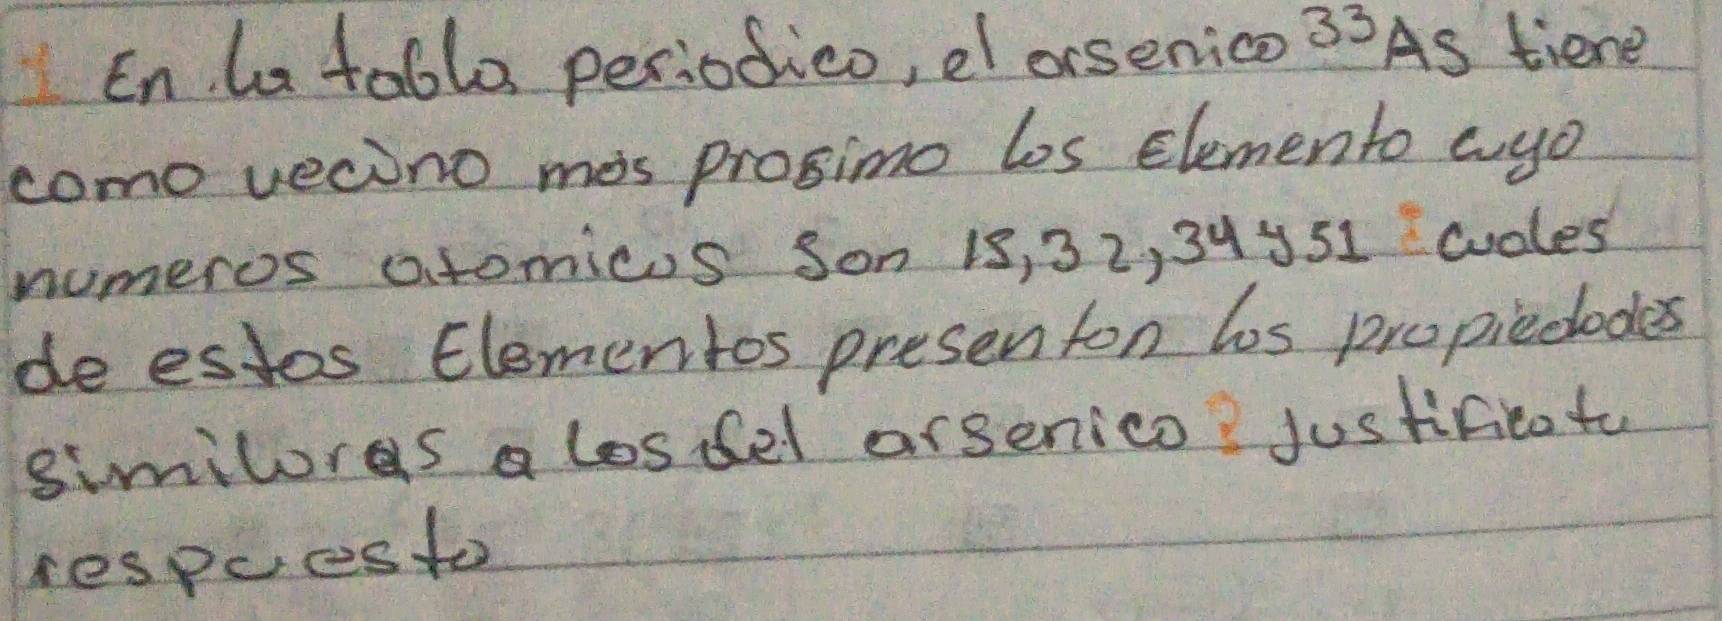 1 En la tabla periodico, el arsenico ³³As tiene
como vecino mas prosimo los Elemento cuyo
numeros atomicos son 15, 32, 34 y 51 ¿ cuales
de estos Elementos presentan las propiedades
similares a los del arsenico? Justifica tu
respuesta